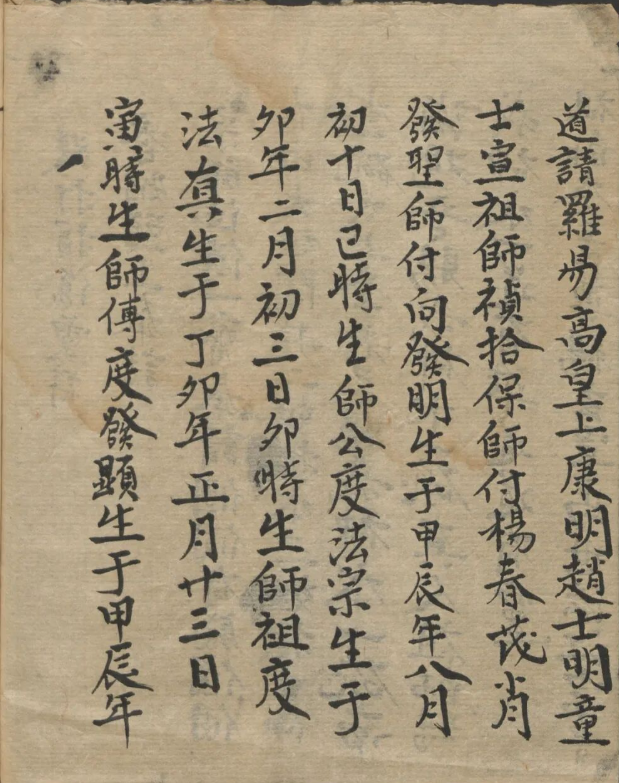 道請羅易高皇上康明趙士明童
士宣祖師禎拾保師付楊春茂肖
發聖師付向發明生于甲辰年八月
初十日巳時生師公度法宗生于
卯年二月初三日卯時生師祖度
法真生于丁卯年正月廿三日
寅時生師傅度發顯生于甲辰年